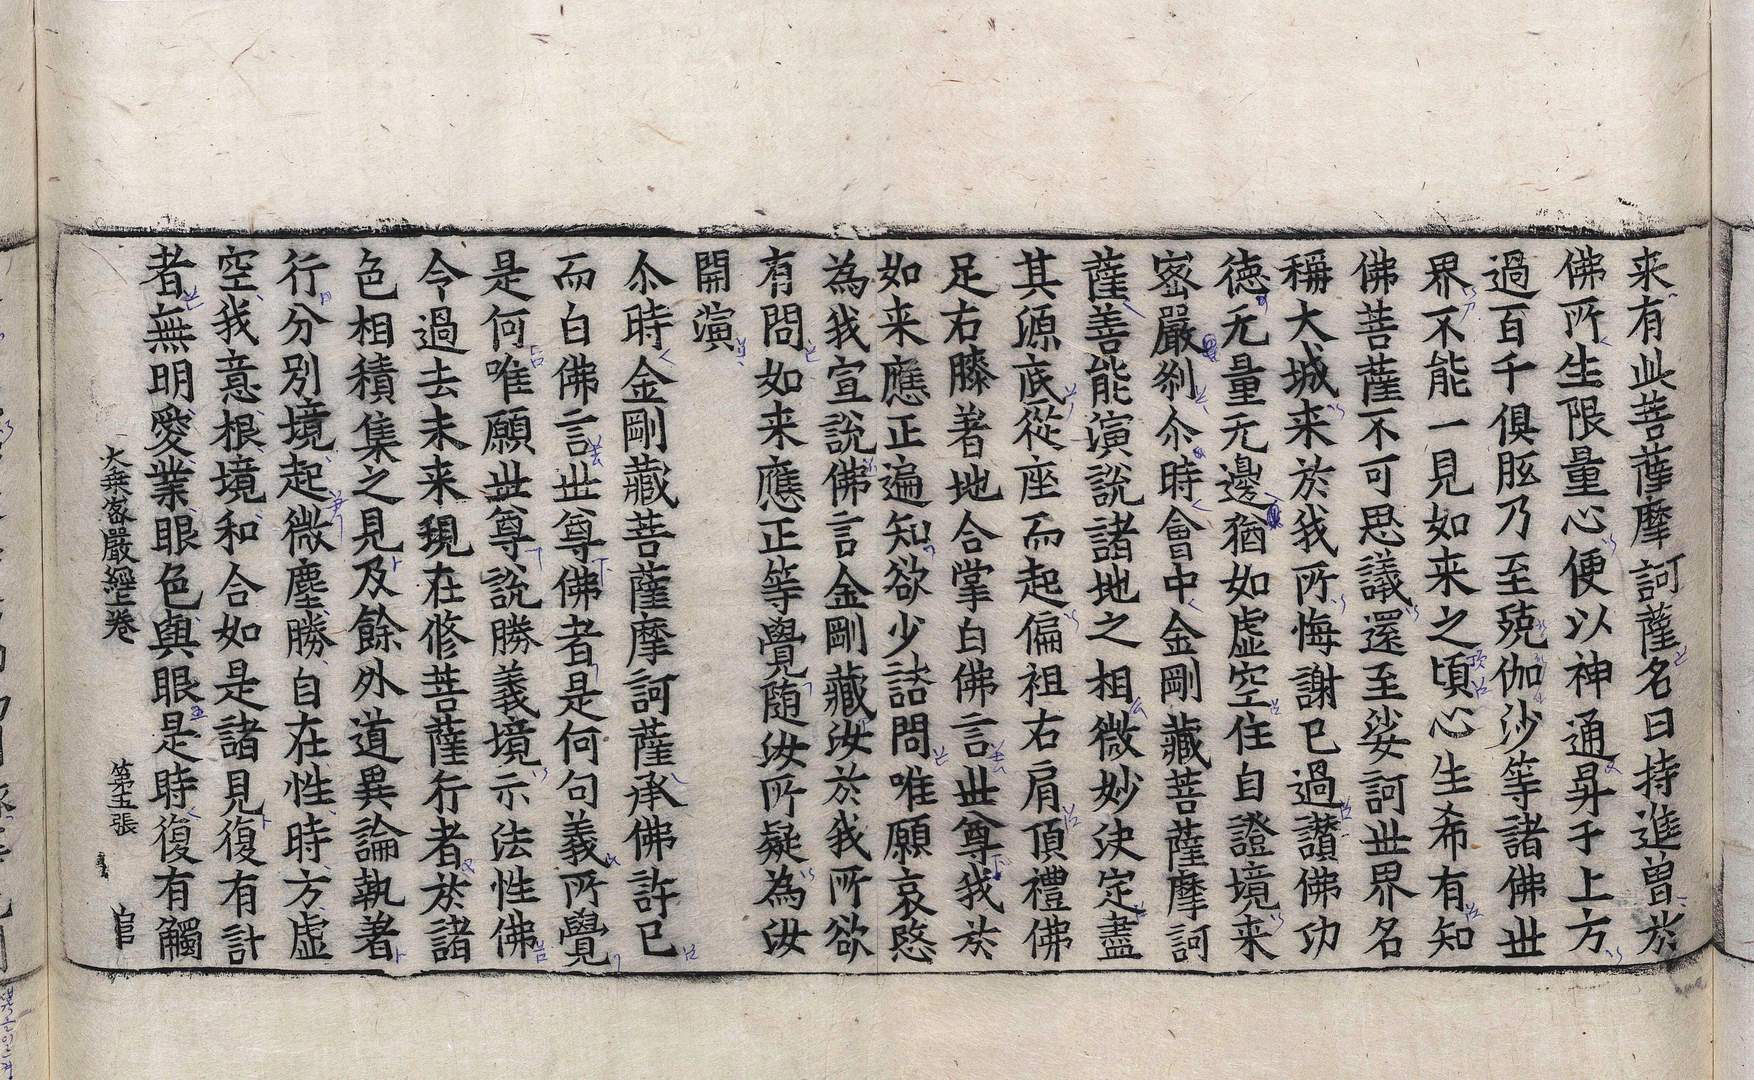 来有此菩薩摩訶薩名曰持進曾於
佛所生限量心便以神通昇于上方
過百千俱胝乃至殑伽沙等諸佛世
界不能一見如来之頂心生希有知
佛菩薩不可思議還至娑訶世界名
稱大城来於我所悔謝已過讃佛功
徳无量无邊猶如虚空住自證境来
宻嚴刹尒時會中金剛藏菩薩摩訶
薩善能演說諸地之相微妙決定盡
其源底從座而起偏袒右肩頂禮佛
足右膝著地合掌白佛言世尊我於
如来應正遍知欲少諮問唯願哀愍
為我宣說佛言金剛藏汝於我所欲
有問如来應正等覺随汝所疑為汝
開演
尒時金剛藏菩薩摩訶薩承佛許已
而白佛言世尊佛者是何句義所覺
是何唯願世尊說勝義境示法性佛
令過去未来現在修菩薩行者於諸
色相積集之見及餘外道異論執著
行分別境起微塵勝自在性時方虚
空我意根境和合如是諸見復有計
者無明愛業眼色與眼是時復有觸
大乗宻嚴經上卷 第五張